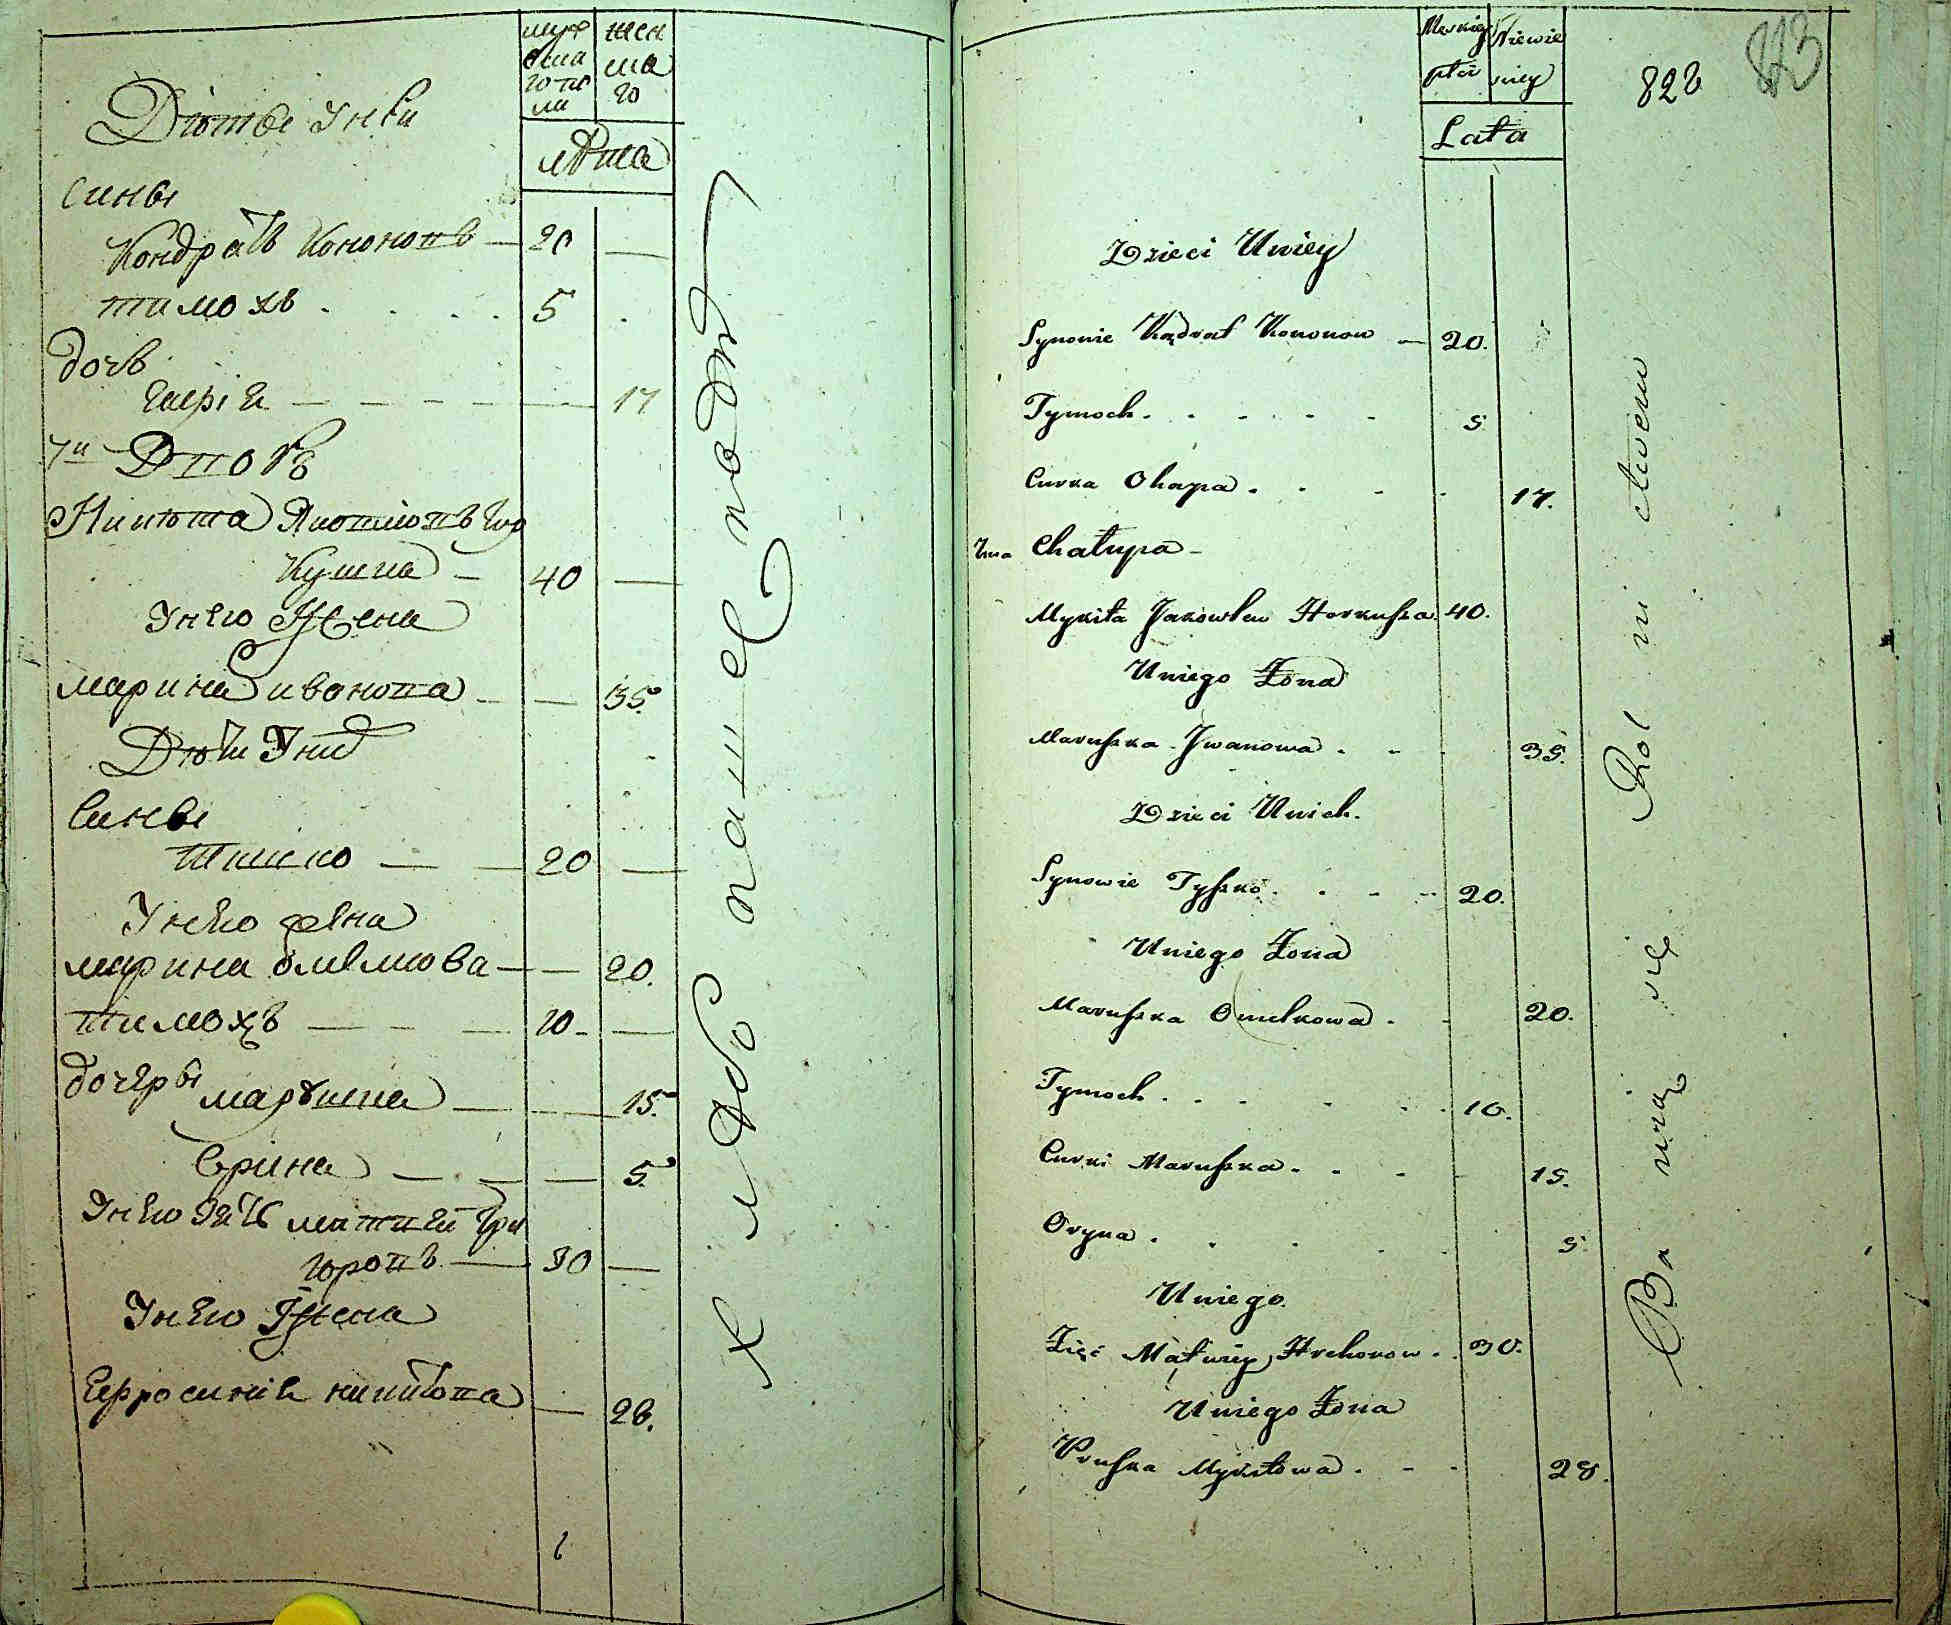 муж
ска
го по
ла
жен
ска
го
лѣта
Дѣти у неи
сины
Кондратъ Кононовъ — 20 —
тимохъ . . . . 5 .
дочь
17
7й Двор
Никита Яковлевъ Гор
кушка — 40 —
У него Жена
марина иванова — — 35.
Дѣти У них
сины
Тишко — — 20 —
У него жена
марина омелкова — — 20.
тимохъ — — — 10 — —
дочеры марушка — — 15.
Ерина — — — 5.
У него зять матвей Гри
горовъ — 30 —
У него Жена
Ефросиния никитова — 28.
хлѣбопашествомъ
Męskiey
płci
Niewie
sciey
Lata
828
813
Dzieci U niey
Synowie Kądrat Kononow — 20.
Tymoch . . . . . 5
Curka Ohapa . . . . 17.
7ma Chałupa —
Mykita Jakowlew Horkuszka 40.
U niego Żona
Maruszka Jwanowa . . . 35.
Dzieci U nich.
Synowie Tyszko . . . — 20.
U niego Żona
Maruszka Omelkowa . . 20.
Tymoch . . . . . . 10.
Curki Maruszka . . . . 15.
Oryna . . . . . 5
U niego
Zięć Matwiey Hrehorow . . 30.
U niego Żona
Pruska Mykitowa . . . 28.
Ba wią się Rol ni ctwem